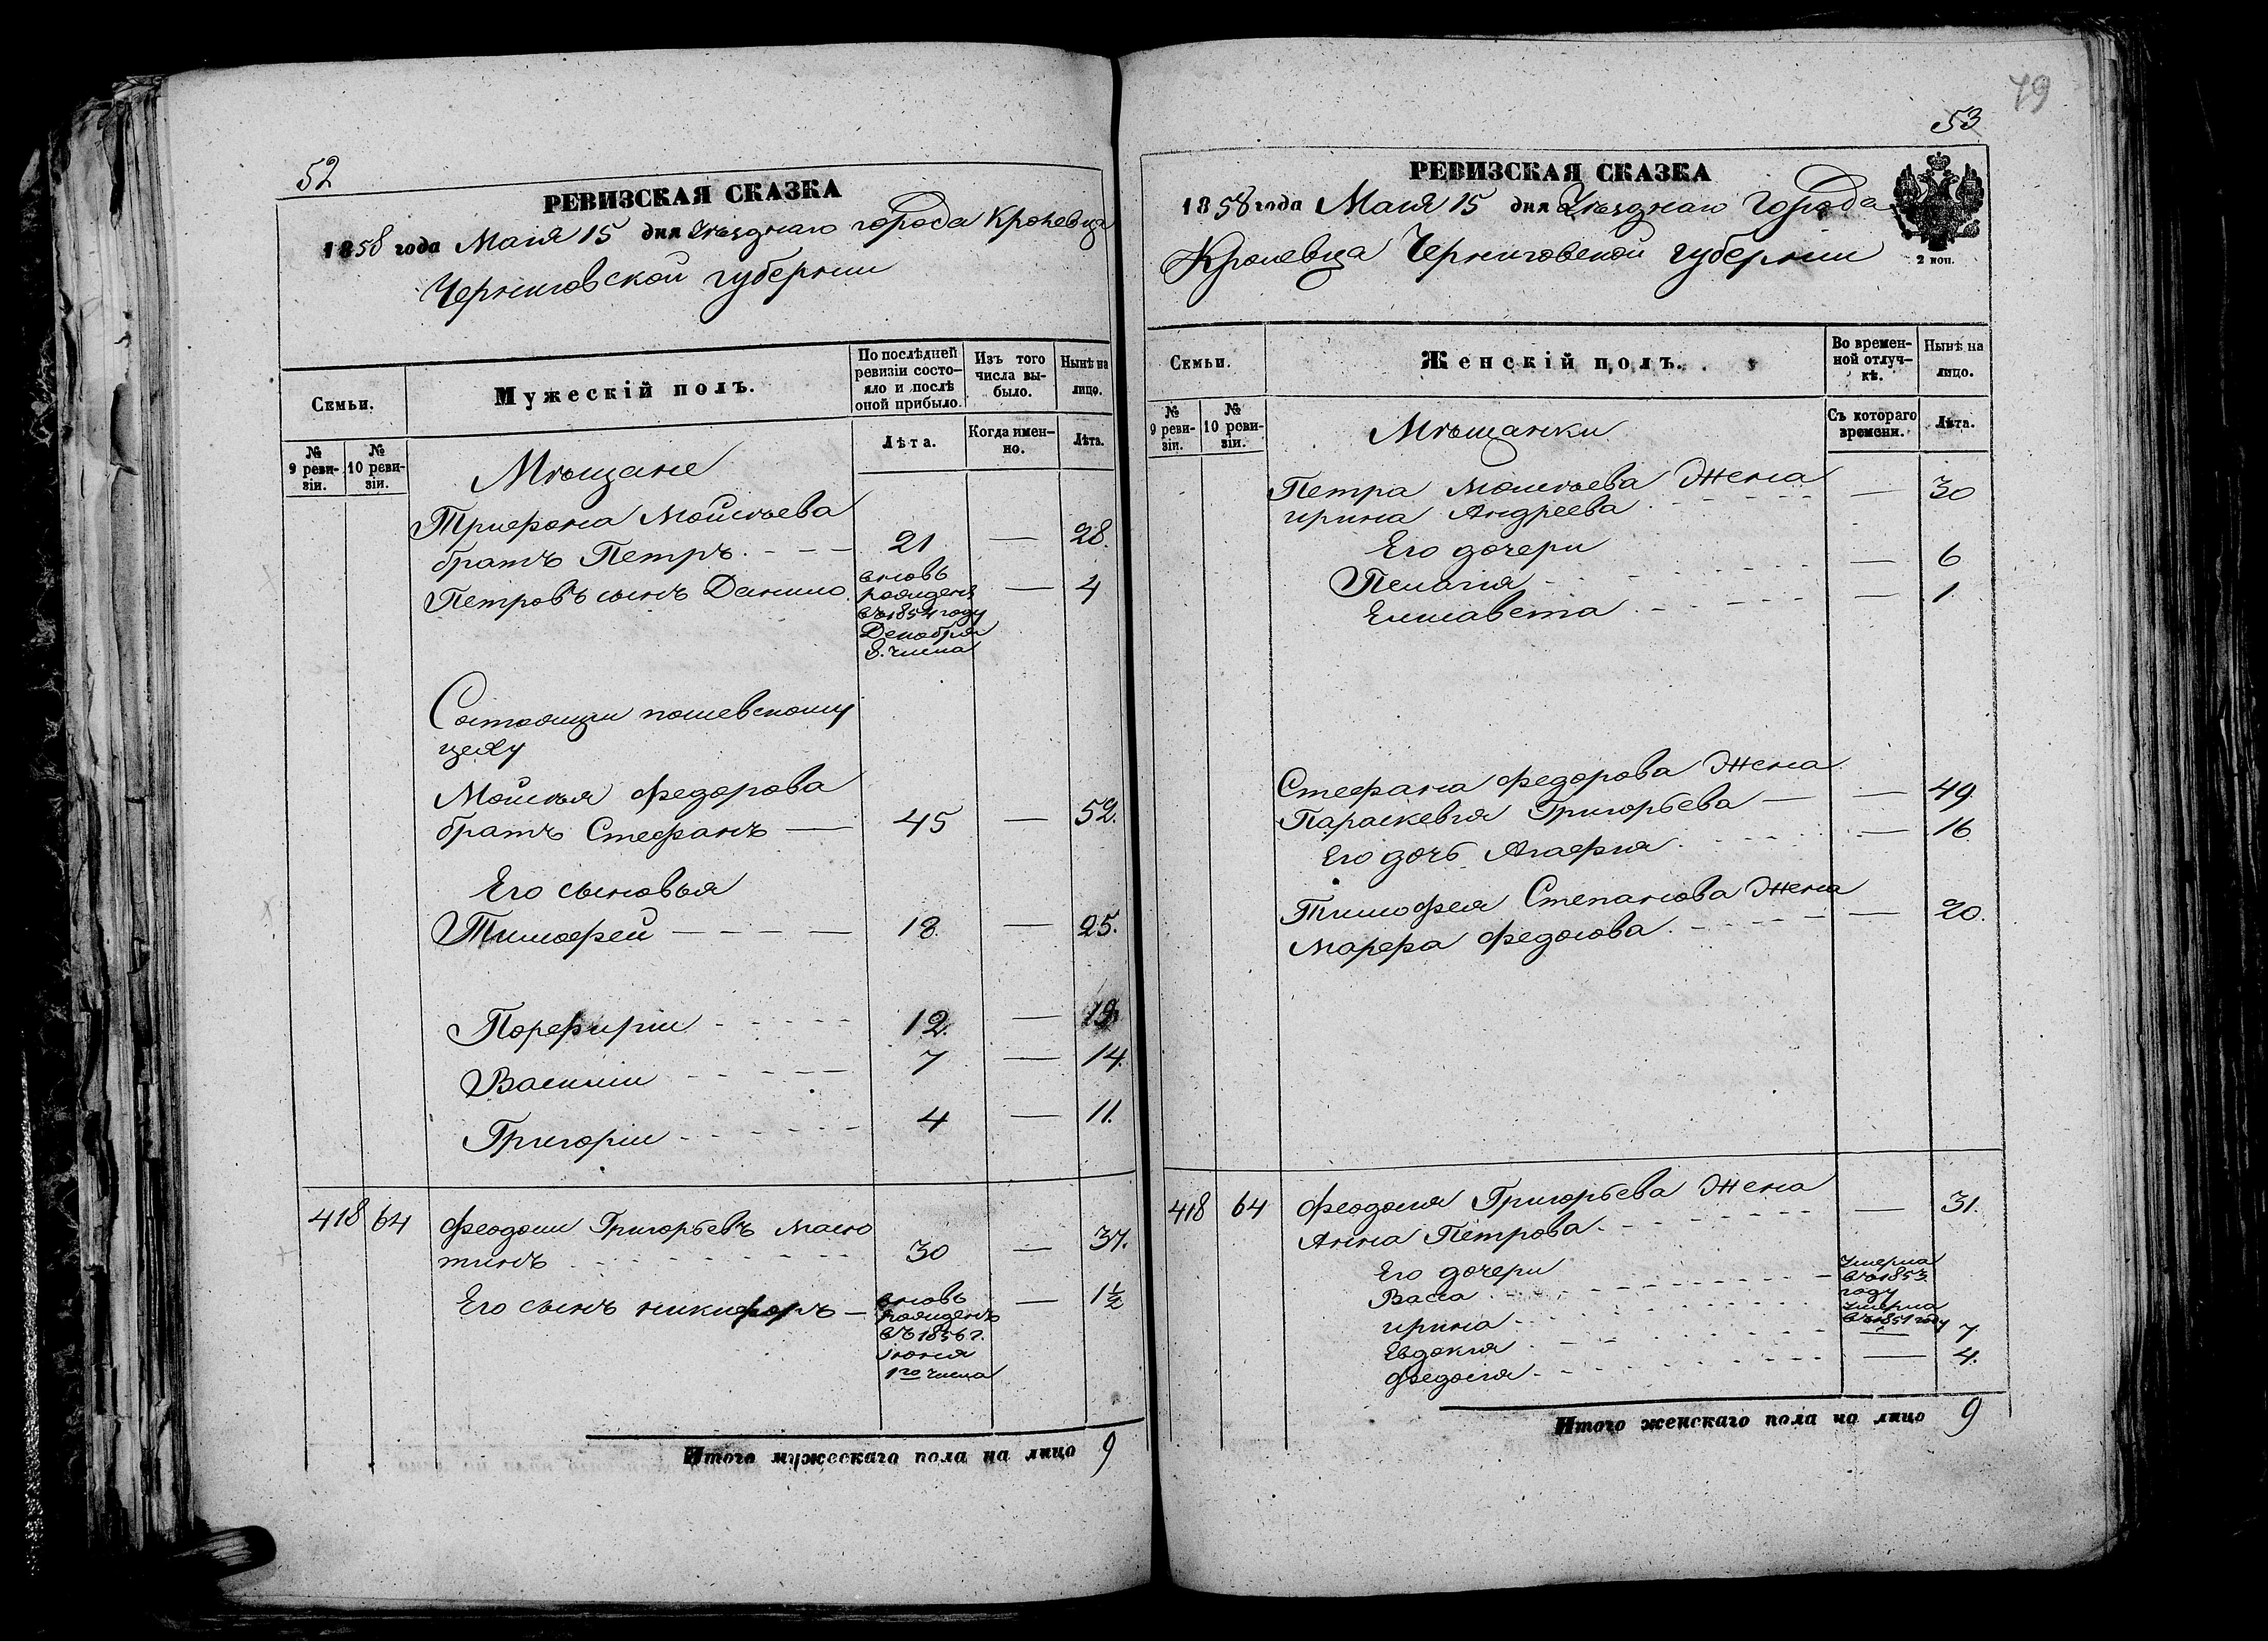 52
РЕВИЗСКАЯ СКАЗКА
1858 года Маія 15 дня Уѣзднаго города Кролевца
Черниговской губерніи
Семьи.
Мужескій полъ.
По послѣдней ревизіи состояло и послѣ оной прибыло.
Изъ того числа выбыло.
Нынѣ на лицо.
№ 9 ревизіи.
№ 10 ревизіи.
Лѣта.
Когда именно.
Лѣта.
Мѣщане
Трифона Мойсѣева
братъ Петръ - - - 21 — 28.
Петровъ сынъ Данило. вновь — 4
рожденъ
въ 1854 году
Декабря
8. числа
Состоящіи
цеху
Мойсѣя Федорова
братъ Стефанъ — 45 — 52.
Его сыновья
Тимофей - - - - 18. — 25.
Порфирій - - - - - 12. — 19.
Василій - - - - - 7 — 14.
Григорій - - - - - - 4 — 11.
418 64 Феодосій Григорьевъ Масю
тинъ - - - - - - - - 30 — 37.
Его сынъ никифоръ — вновь — 1½
рожденъ
въ 1856 г.
Іюня
1го числа
Итого мужескаго пола на лицо 9
79
53
РЕВИЗСКАЯ СКАЗКА
1858 года Маія 15 дня Уѣзднаго Города
Кролевца Черниговской губерніи
2 коп.
Семьи.
Женскій полъ.
Во временной отлучкѣ.
Нынѣ на лицо.
№ 9 ревизіи.
№ 10 ревизіи.
Съ котораго времени.
Лѣта.
Мѣщанки
Петра Мойсѣева Жена
ирина Андреева - - - - - — 30
Его дочери
Пелагія - - - - - - — 6
Елисавета - - - - - — 1.
Стефана Федорова Жена
Параскевія Григорьева — — 49.
Его дочь Агафия - - - - - — 16.
Тимофея Степанова Жена
Марфа Федосова - - - - - — 20.
418 64 Феодосія Григорьева Жена
Анна Петрова - - - - - - — 31.
Его дочери
Васса - - - - - - - - умерла
въ 1853
году
ирина - - - - - - - - умерла
въ 1851 году
Евдокія - - - - - - - — 7.
Федосія - - - - - - - — 4.
Итого женскаго пола на лицо 9